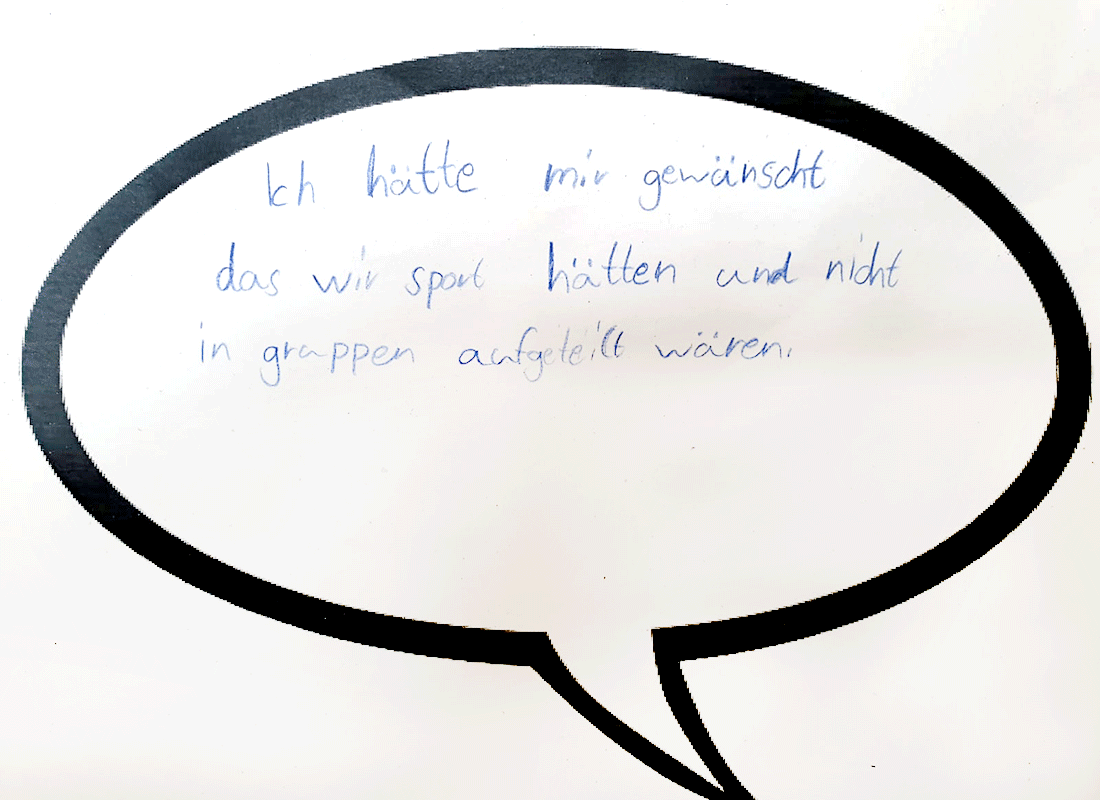 Ich hätte mir gewünscht
das wir sport hätten und nicht
in gruppen aufgeteilt wären.